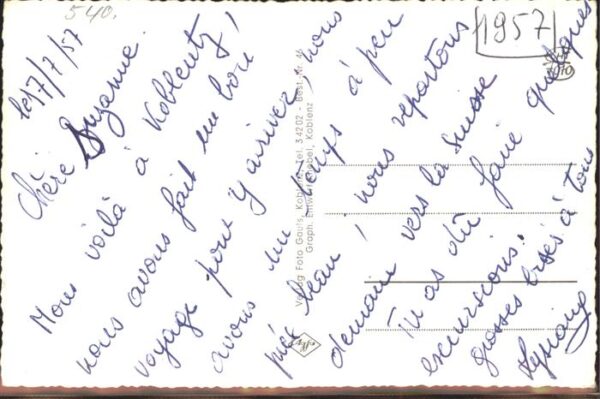 540.
1957
le 17/7/57
Chère Suzanne.
Nous voilà à Koblentz
nous avons fait un bon
voyage pour y arriver, nous
avons un temps à peu
près beau, nous repartons
demain vers la Suisse
Tu as dû faire quelques
excursions.
grosses bises à tous
Verlag Foto Gauls, Koblenz, Tel. 34202 - Best.-Nr. 46
Graph. Entwurf: Koblenz